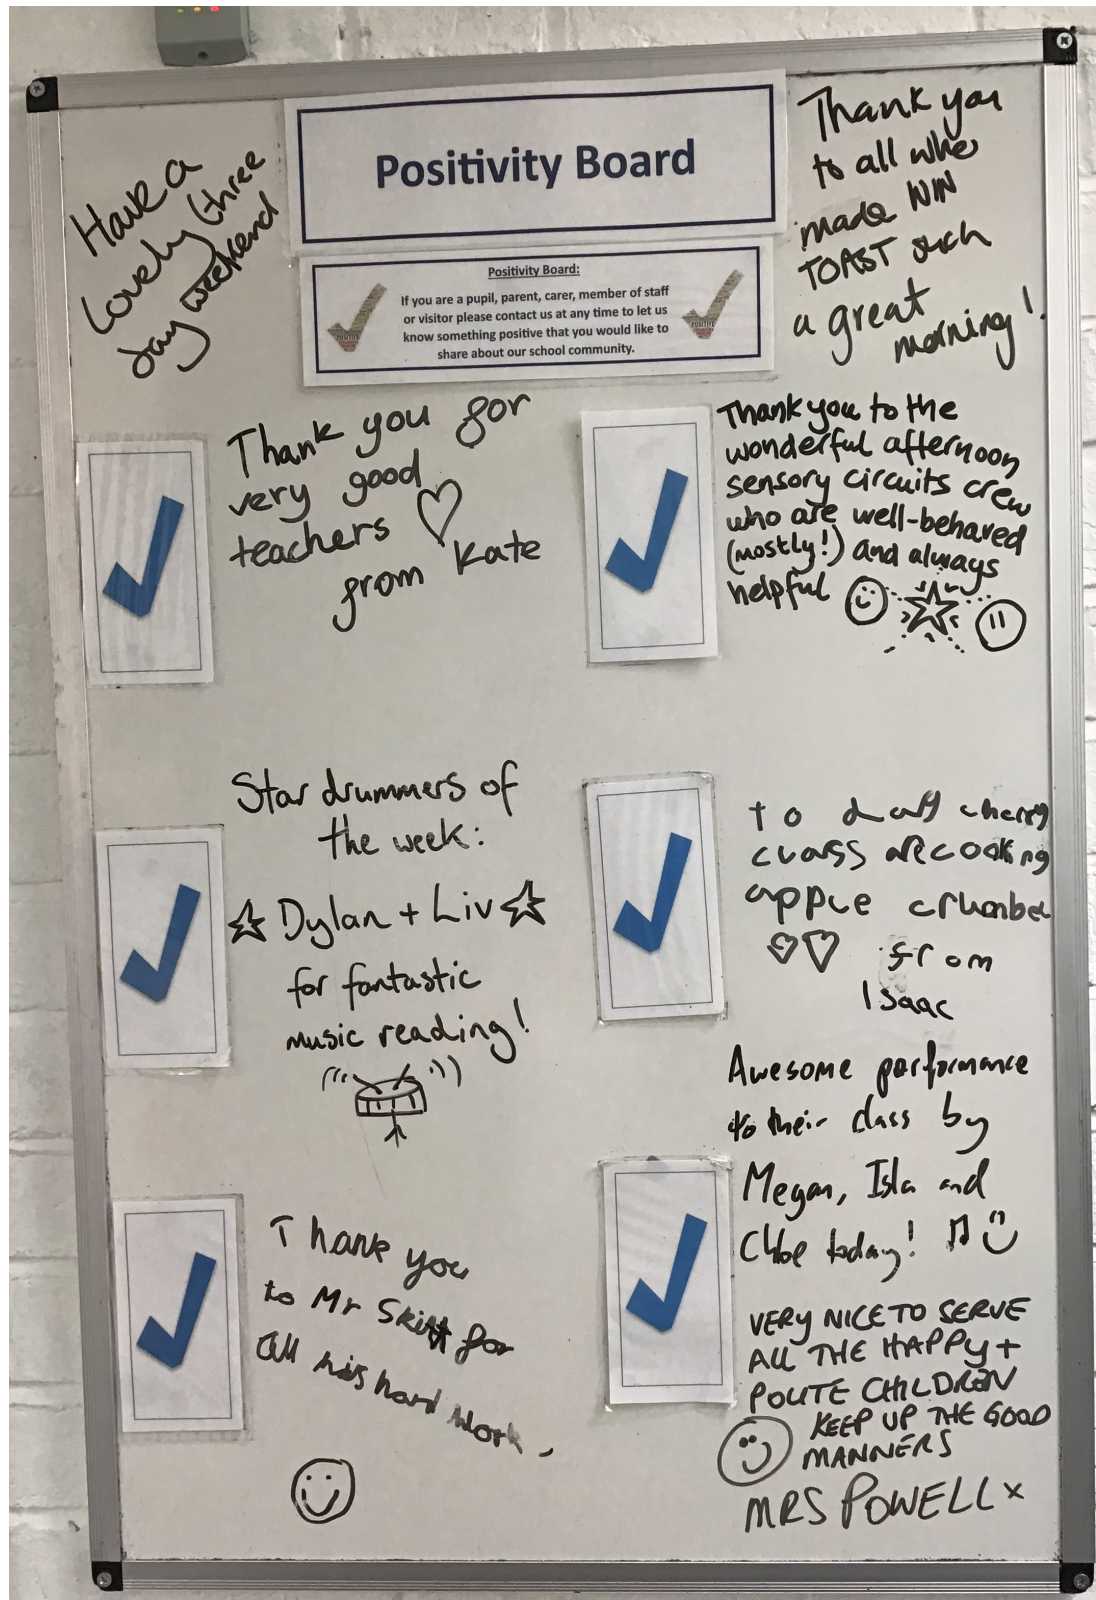 Positivity Board
Positivity Board:
If you are a pupil, parent, carer, member of staff
or visitor please contact us at any time to let us
know something positive that you would like to
share about our school community.
Have a
lovely (three
day weekend
Thank you
to all who
made WIN
TOAST such
a great
morning!
Thank you for
very good
teachers
from Kate
Thank you to the
wonderful afternoon
sensory circuits crew
who are well-behaved
(mostly!) and always
helpful
Star drummers of
the week:
Dylan + Liv
for fantastic
music reading!
to cherry
class cooking
apple crumbel
from
Isaac
Thank you
to Mr for
all his hard work,
Awesome performance
to their class by
Megan, Isla and
Chloe today!
VERY NICE TO SERVE
ALL THE HAPPY +
POLITE CHILDREN
KEEP UP THE GOOD
MANNERS
MRS POWELL x